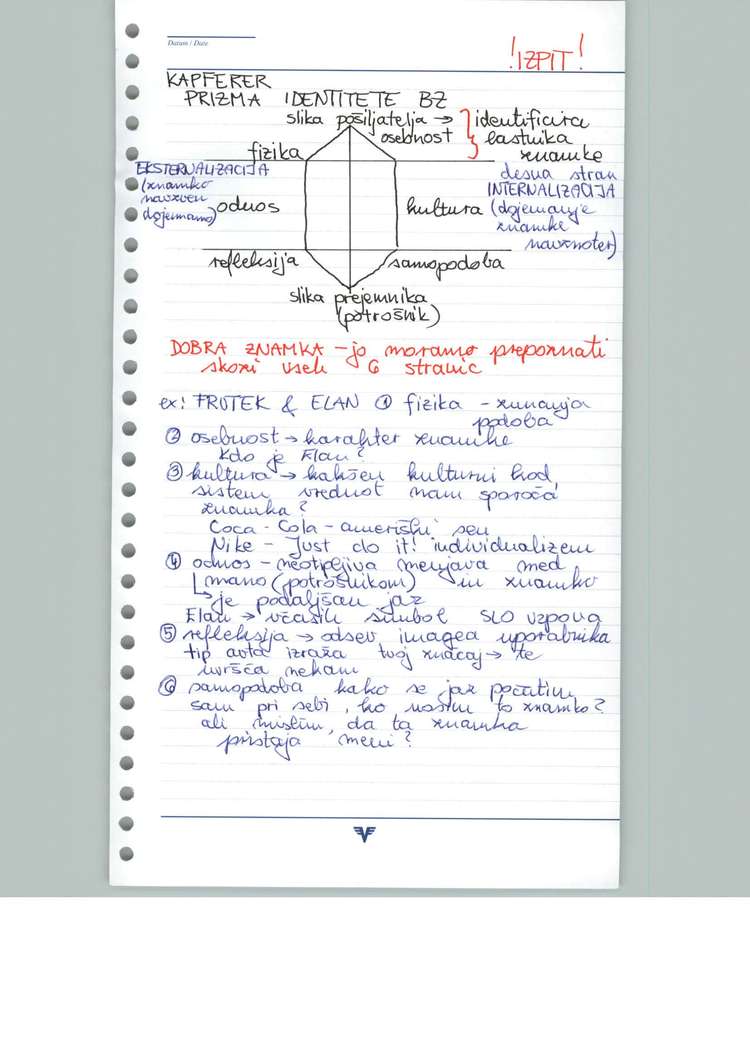 Datum / Date
! IZPIT !
KAPFERER
PRIZMA IDENTITETE BZ
slika pošiljatelja → identificira
osebnost lastnika
fizika znamke
EKSTERNALIZACIJA desna stran
(znamko INTERNALIZACIJA
navzven
dojemamo) odnos kultura (dojemanje
znamke
navznoter)
refleksija samopodoba
slika prejemnika
(potrošnik)
DOBRA ZNAMKA - jo moramo prepoznati
skozi vseh 6 stranic
ex: FRUTEK & ELAN ① fizika - zunanja
podoba
② osebnost → karakter znamke
Kdo je Elan?
③ kultura → kakšen kulturni kod,
sistem vrednot nam sporoča
znamka?
Coca - Cola - ameriški sen
Nike - Just do it! individualizem
④ odnos - neotipljiva menjava med
mano (potrošnikom) in znamko
↳ je podaljšan jaz
Elan → včasih simbol SLO vzpona
⑤ refleksija → odsev imagea uporabnika
tip avta izraža tvoj značaj → te
uvršča nekam
⑥ samopodoba kako se jaz počutim
sam pri sebi, ko nosim to znamko?
ali mislim, da ta znamka
pristaja meni?